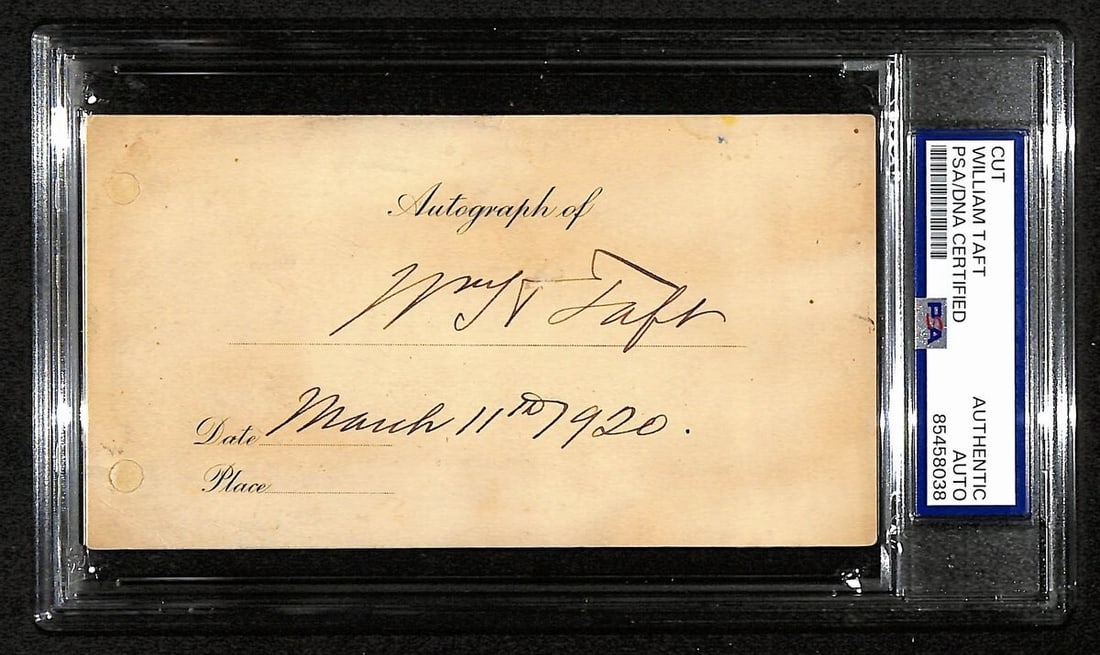 Autograph of
Wm H Taft
Date March 11TH 1920.
Place
CUT
WILLIAM TAFT
PSA/DNA CERTIFIED
PSA
AUTHENTIC
AUTO
85458038